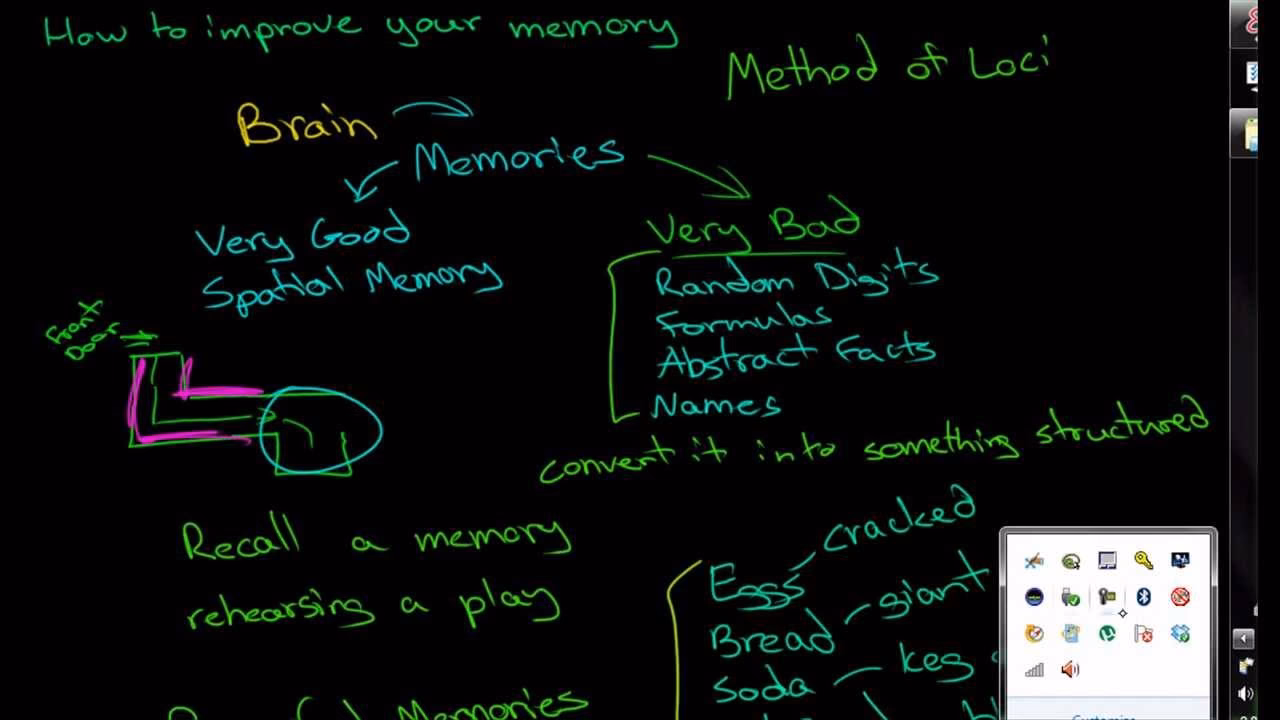 How to improve your memory
Method of Loci
Brain
Memories
Very Good
Spatial Memory
Very Bad
Random Digits
Formulas
Abstract Facts
Names
convert it into something structured
Front
Door
Recall a memory
rehearsing a play
Memories
Eggs cracked
Bread giant
Soda keg